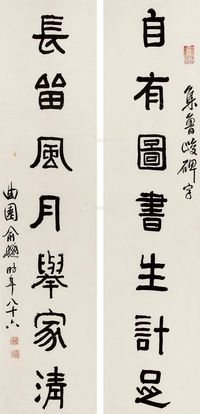 集魯峻碑字
自有圖書生計足
長畱風月舉家清
曲園俞樾時年八十六